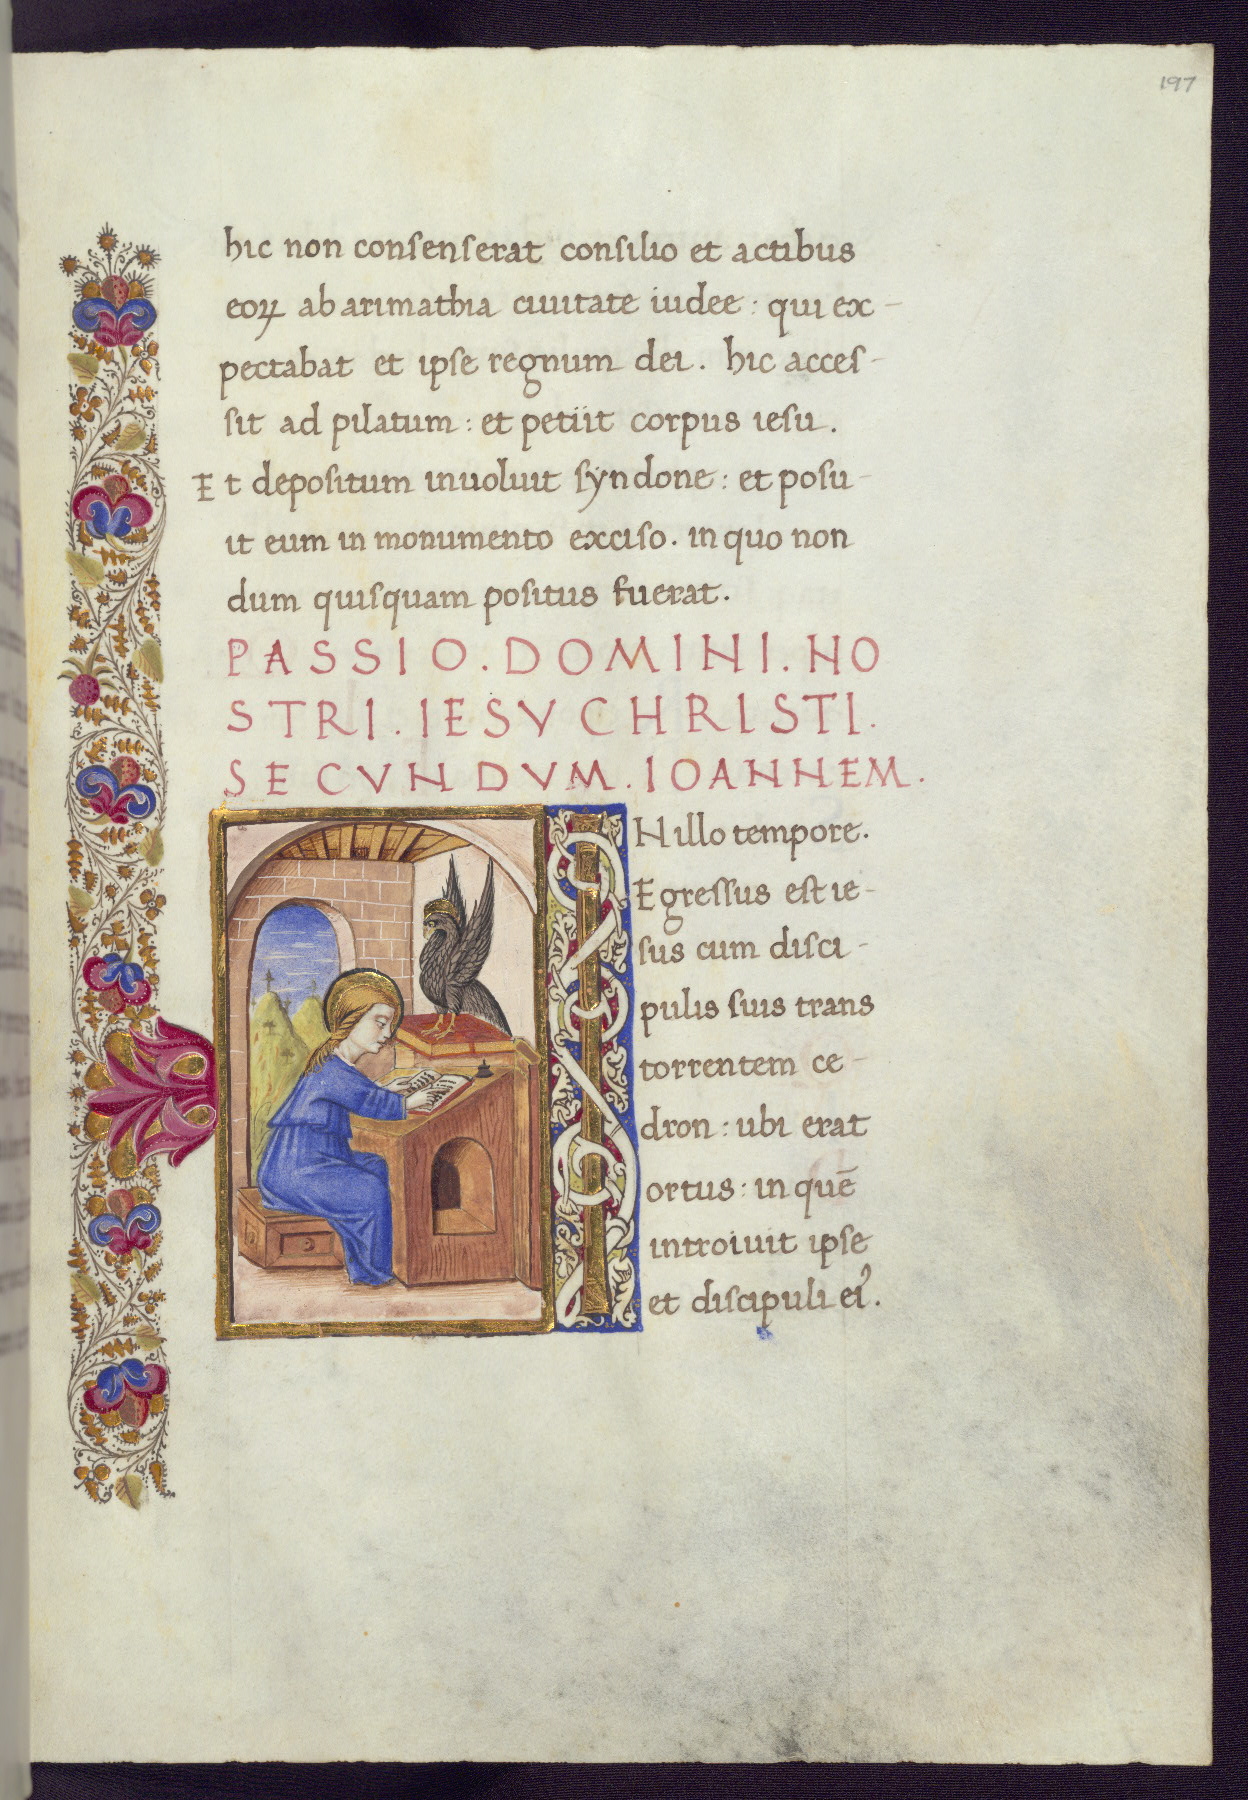 197
hic non consenserat consilio et actibus
eoꝝ ab arimathia ciuitate iudee : qui ex-
pectabat et ipse regnum dei . hic acces-
sit ad pilatum : et petiit corpus iesu .
Et depositum inuoluit syndone : et posu-
it eum in monumento exciso . in quo non
dum quisquam positus fuerat .
PASSIO . DOMINI . NO
STRI . IESV CHRISTI .
SECVNDVM . IOANNEM .
IN illo tempore .
Egressus est ie-
sus cum disci-
pulis suis trans
torrentem ce-
dron : ubi erat
ortus : in quē
introiuit ipse
et discipuli eiꝰ .